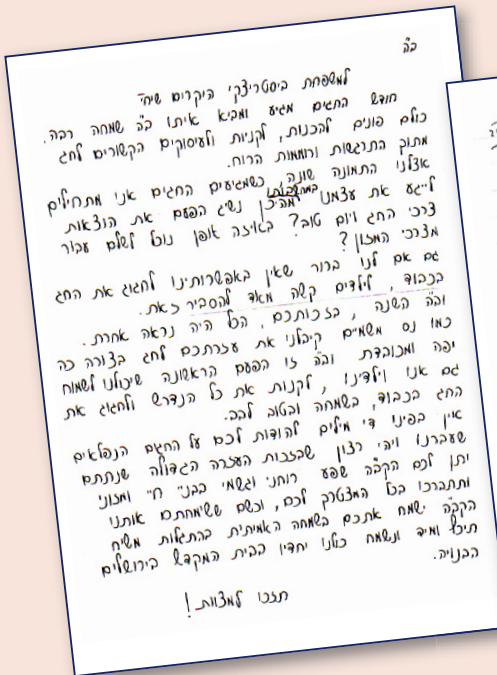 ב"ה
למשפחת ביסטריצקי היקרים שיחי'
חודש החגים מגיע ומביא איתו ב"ה שמחה רבה.
כולם פונים להכנות, לקניות ולעיסוקים הקשורים לחג
מתוך התרגשות ורוממות הרוח.
אצלנו התמונה שונה, כשמגיעים החגים אני מתחילים
לייגע את עצמנו במחשבות מהיכן נשיג הפעם את הוצאות
צרכי החג ויום טוב? באיזה אופן נוכל לשלם עבור
מצרכי המזון?
גם אם לנו ברור שאין באפשרותינו לחגוג את החג
בכבוד, לילדים קשה מאד להסביר זאת.
וב"ה השנה, בזכותכם, הכל היה נראה אחרת.
כמו נס משמים קיבלנו את עזרתכם לחג בצורה כה
יפה ומכובדת וב"ה זו הפעם הראשונה שיכולנו לשמוח
גם אנו וילדינו, לקנות את כל הנדרש ולחגוג את
החג בכבוד, בשמחה ובטוב לבב.
אין בפינו די מילים להודות לכם על החגים הנפלאים
שעברנו ויהי רצון שבזכות העזרה הגדולה שנתתם
יתן לכם הקב"ה שפע רוחני וגשמי בבני חיי ומזוני
ותתברכו בכל המצטרך לכם, וכשם ששימחתם אותנו
הקב"ה ישמח אתכם בשמחה האמיתית בהתגלות משיח
תיכף ומיד ונשמח כולנו יחדיו בבית המקדש בירושלים
הבנויה.
תזכו למצוות!